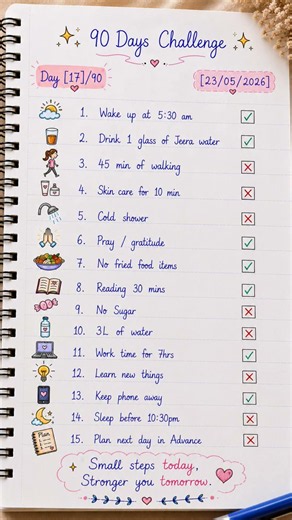 90 Days Challenge
Day [17]/90
[23/05/2026]
1. Wake up at 5:30 am
2. Drink 1 glass of Jeera water
3. 45 min of walking
4. Skin care for 10 min
5. Cold shower
6. Pray / gratitude
7. No fried food items
8. Reading 30 mins
9. No Sugar
10. 3L of water
11. Work time for 7hrs
12. Learn new things
13. Keep phone away
14. Sleep before 10:30pm
15. Plan next day in Advance
Small steps today,
Stronger you tomorrow.